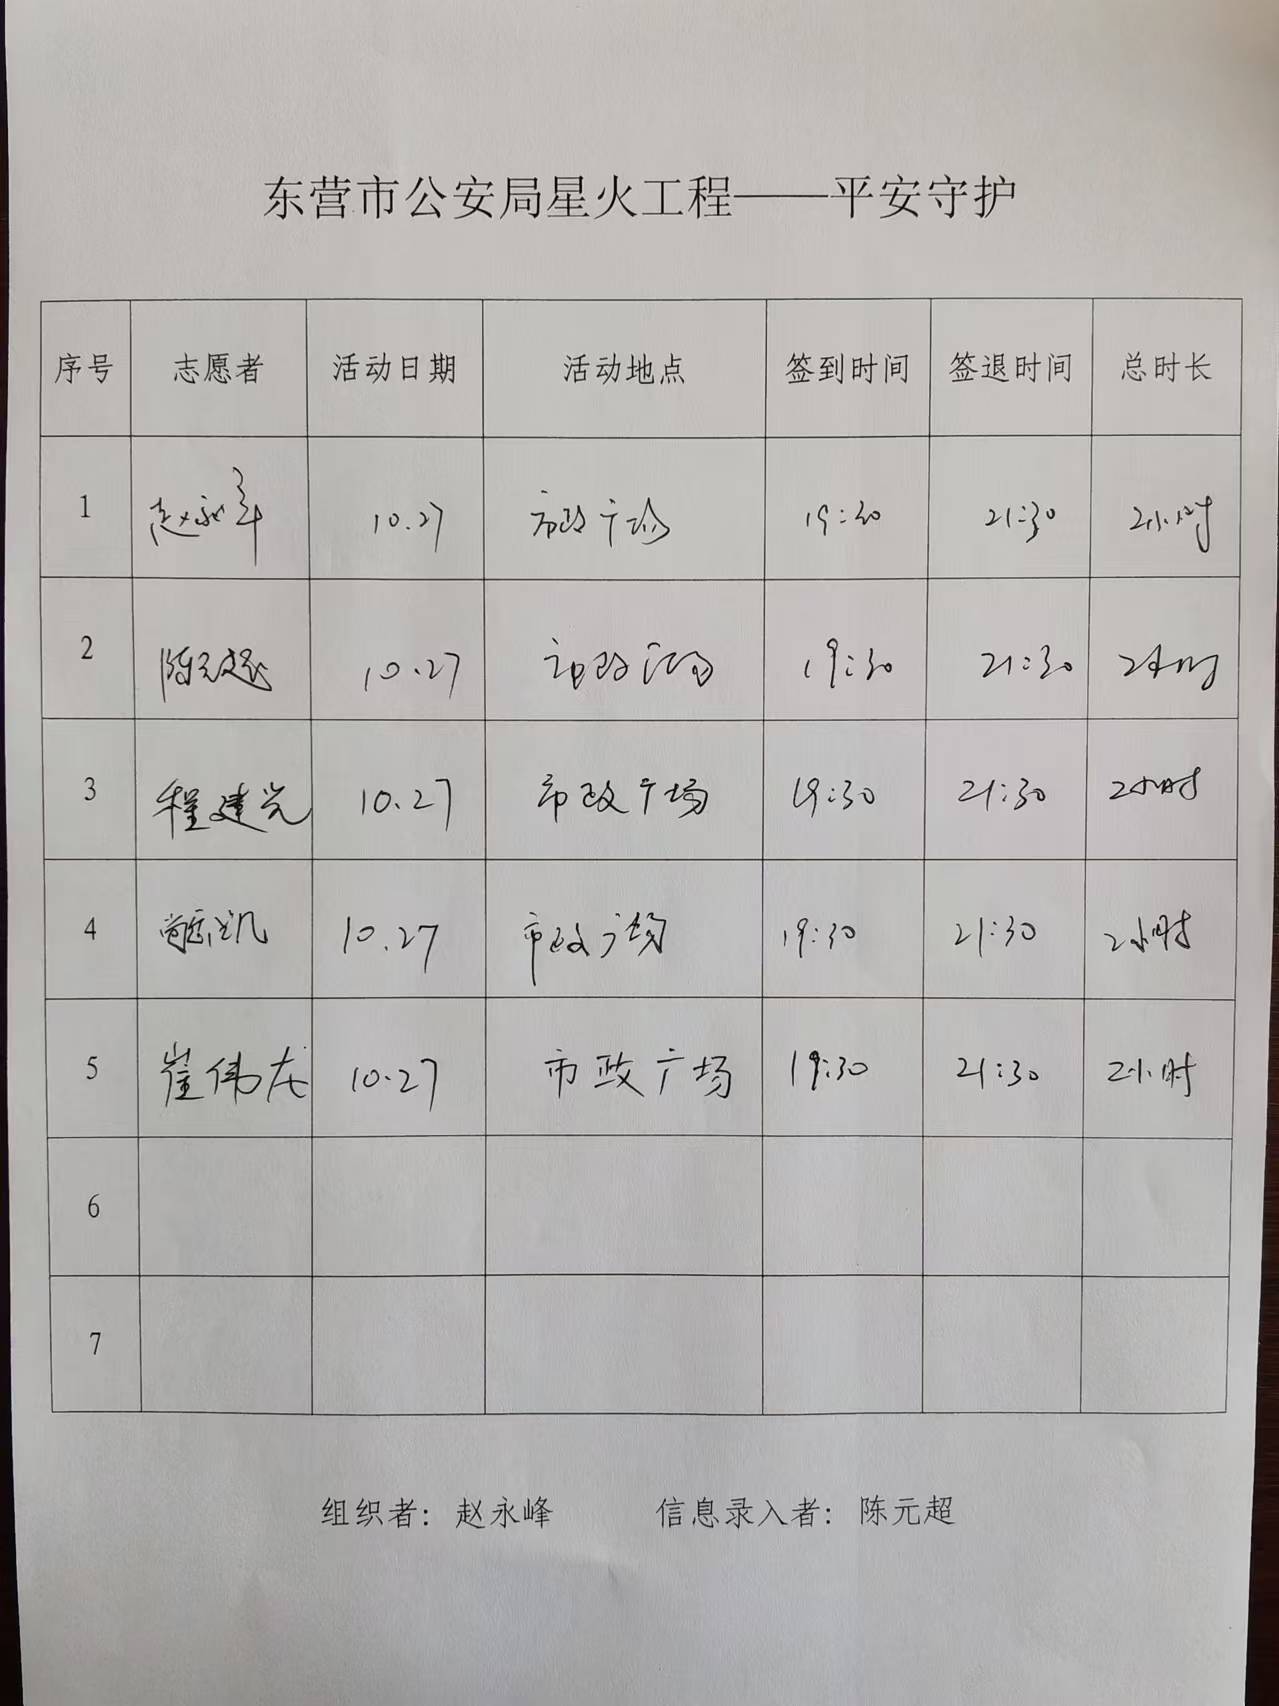 东营市公安局星火工程——平安守护
序号 志愿者 活动日期 活动地点 签到时间 签退时间 总时长
1 赵永峰 10.27 市政广场 19:30 21:30 2小时
2 陈元超 10.27 市政广场 19:30 21:30 2小时
3 程建光 10.27 市政广场 19:30 21:30 2小时
4 10.27 市政广场 19:30 21:30 2小时
5 崔伟龙 10.27 市政广场 19:30 21:30 2小时
6
7
组织者：赵永峰 信息录入者：陈元超